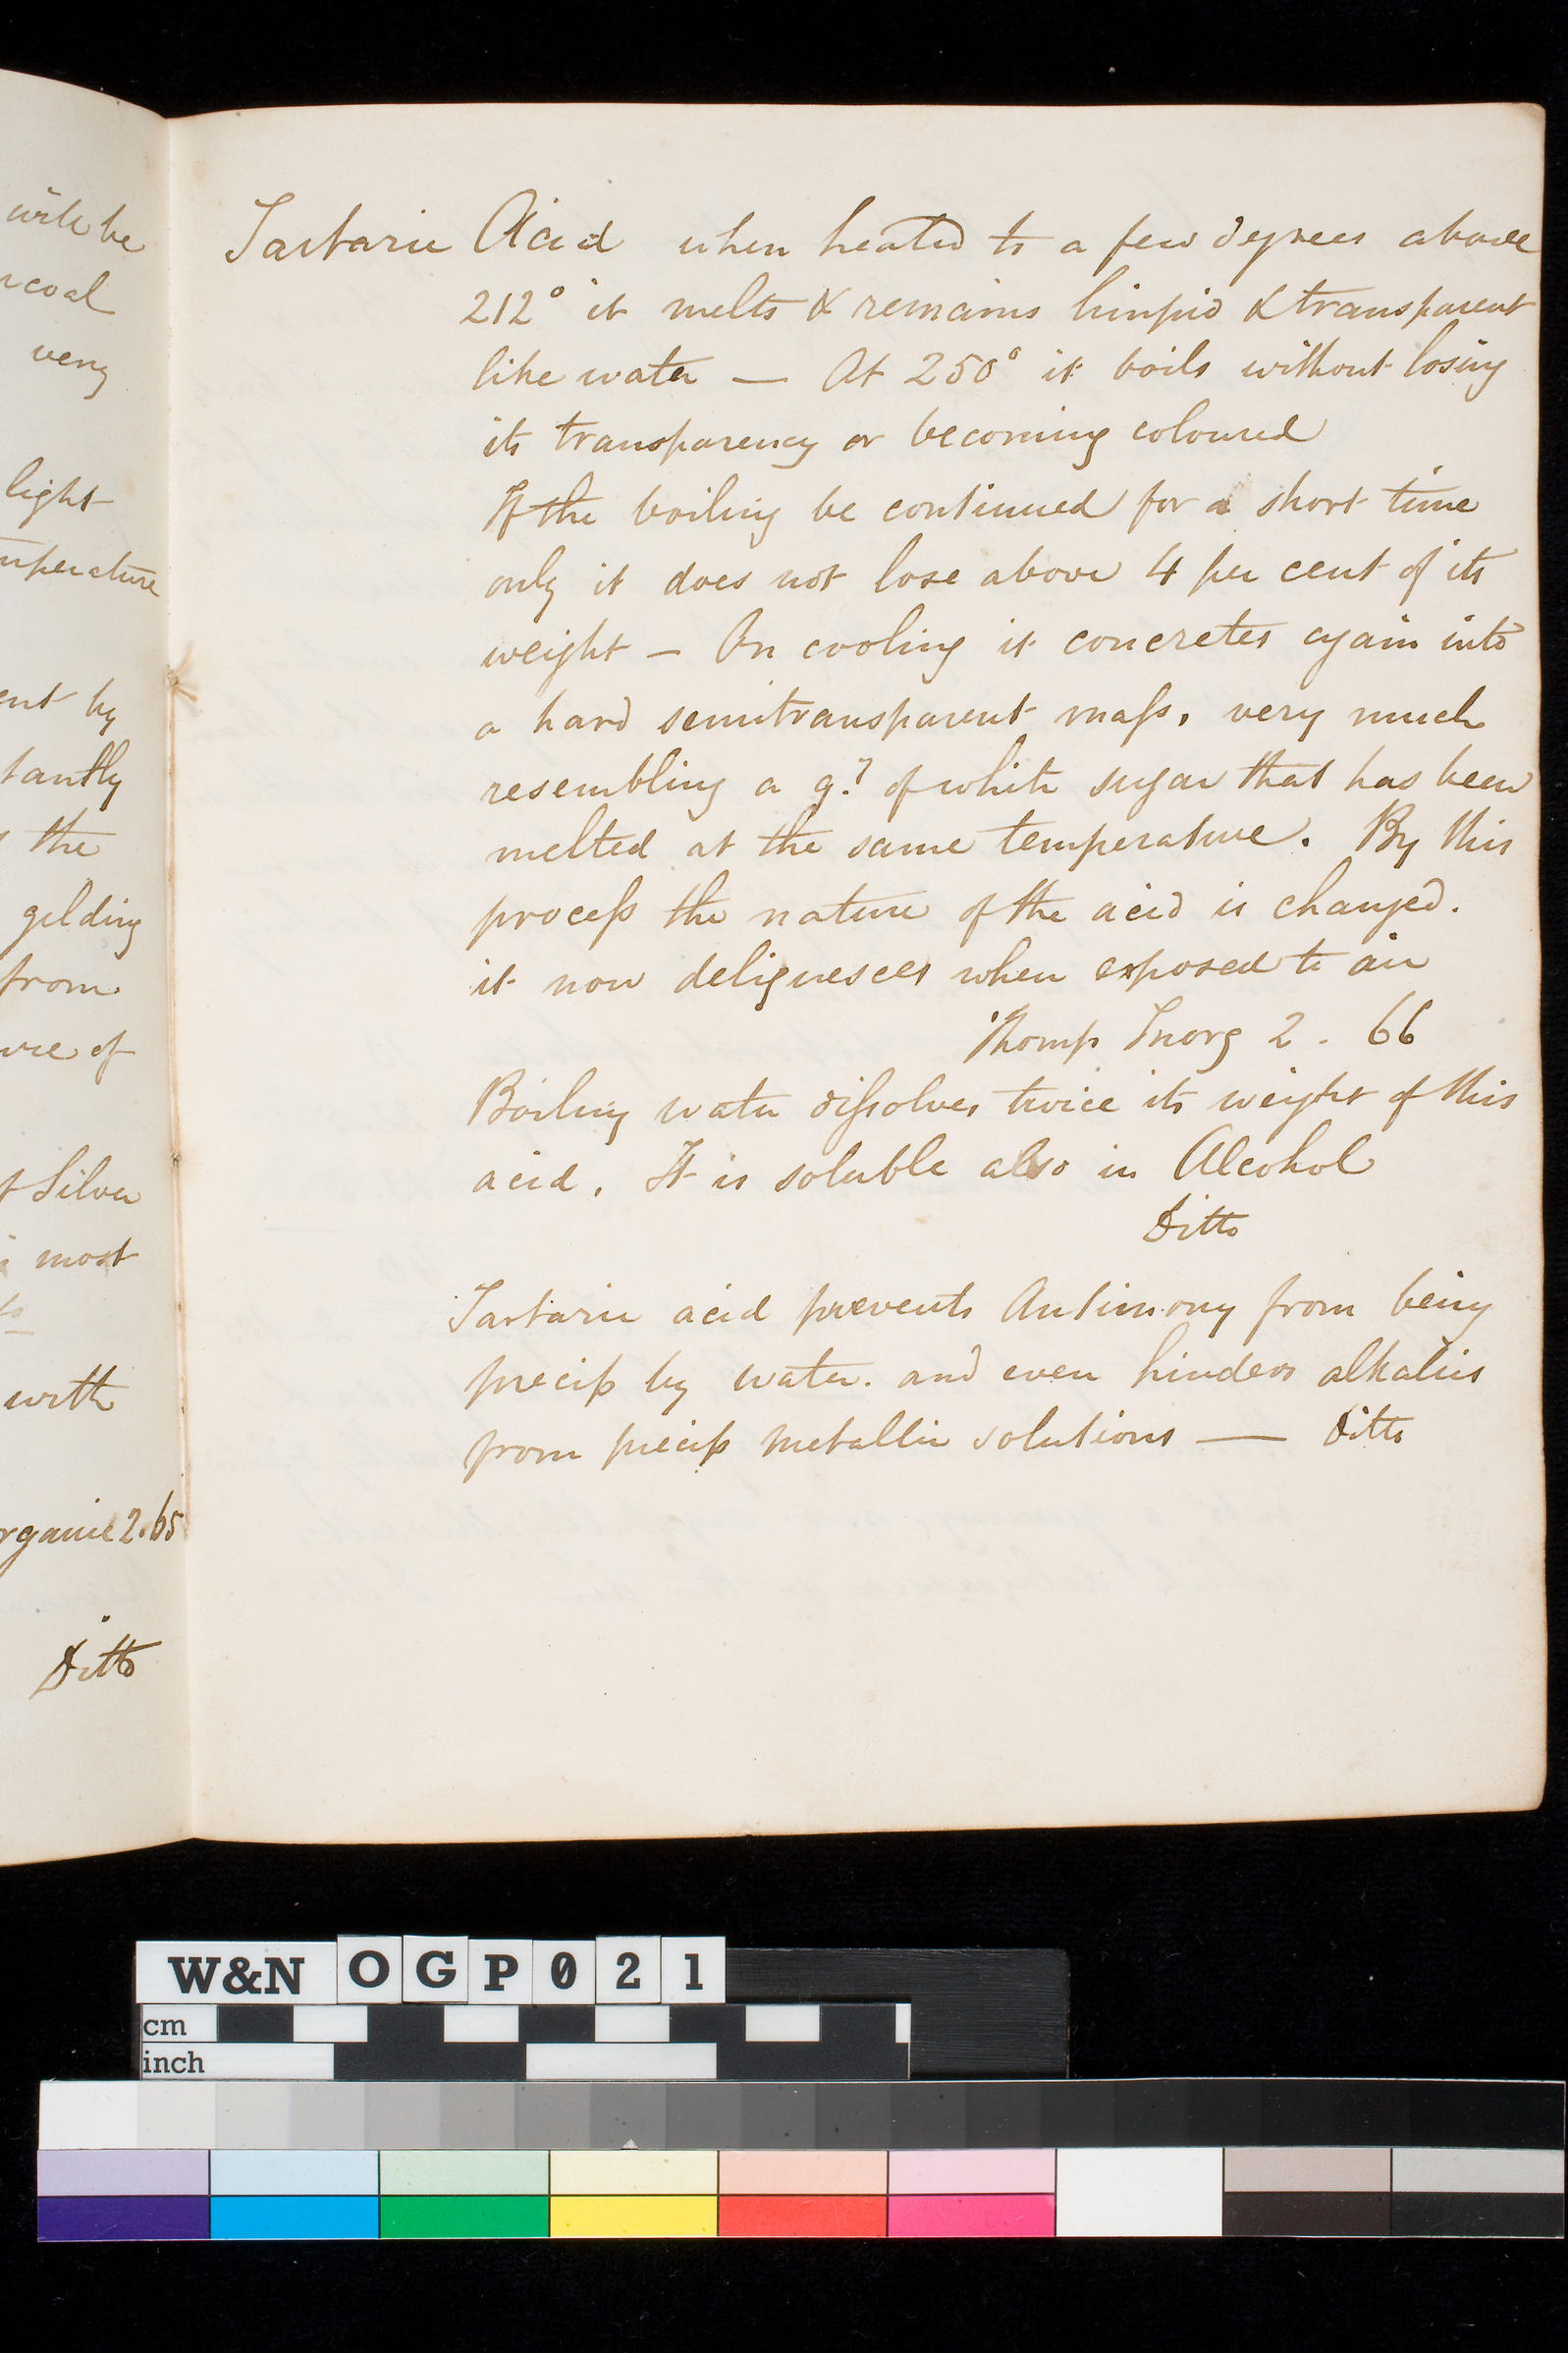 will be
coal
very
light
mperature
ent by
tantly
the
gilding
from
vre of
t Silver
most
to
with
rganic 2.65
Ditto
Tartaric Acid when heated to a few degrees above
212° it melts & remains limpid & transparent
like water — At 250° it boils without losing
its transparency or becoming coloured
If the boiling be continued for a short time
only it does not lose above 4 per cent of its
weight — On cooling it concretes again into
a hard semitransparent mass, very much
resembling a q.? of white sugar that has been
melted at the same temperature. By this
process the nature of the acid is changed.
it now deliquesces when exposed to air
Thomp Inorg 2. 66
Boiling water dissolves twice its weight of this
acid. It is soluble also in Alcohol
Ditto
Tartaric acid prevents Antimony from being
precip by water. and even hinders alkalies
from precip metallic solutions — Ditto
W&N OGP021
cm
inch